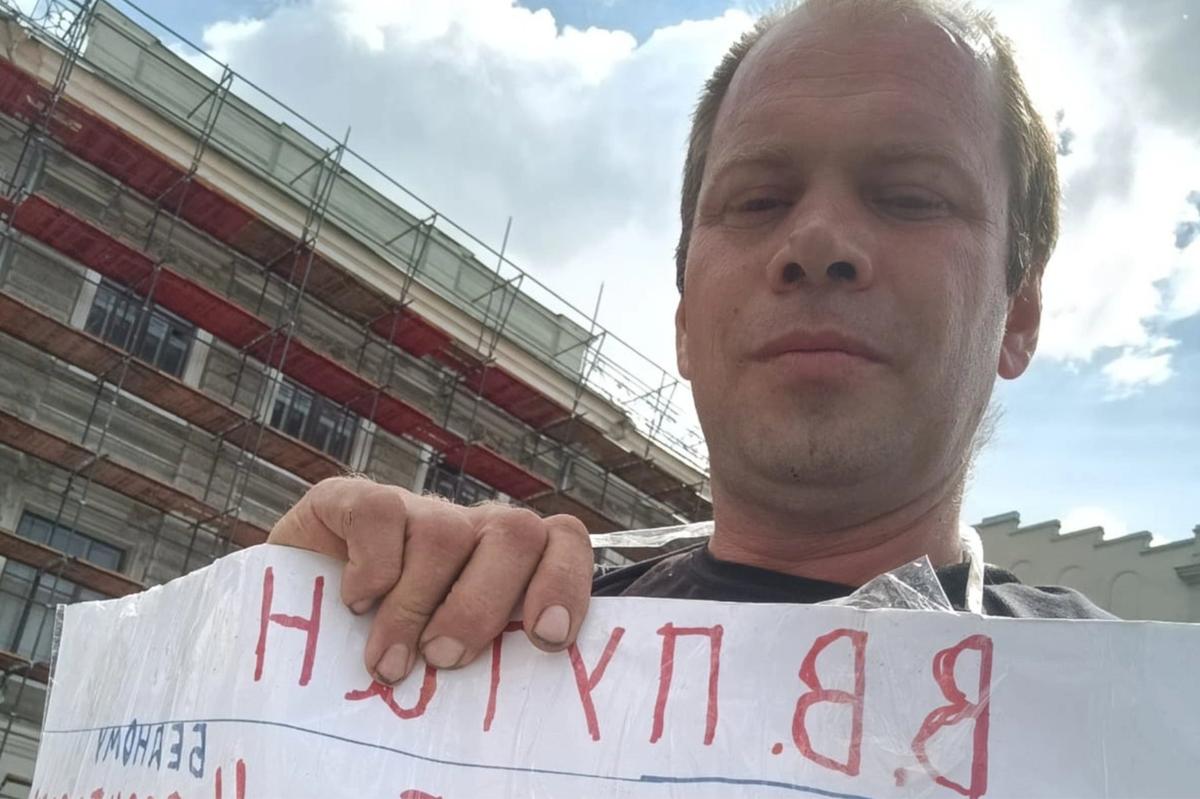 В.В.ПУТИН
БЕДНОМУ